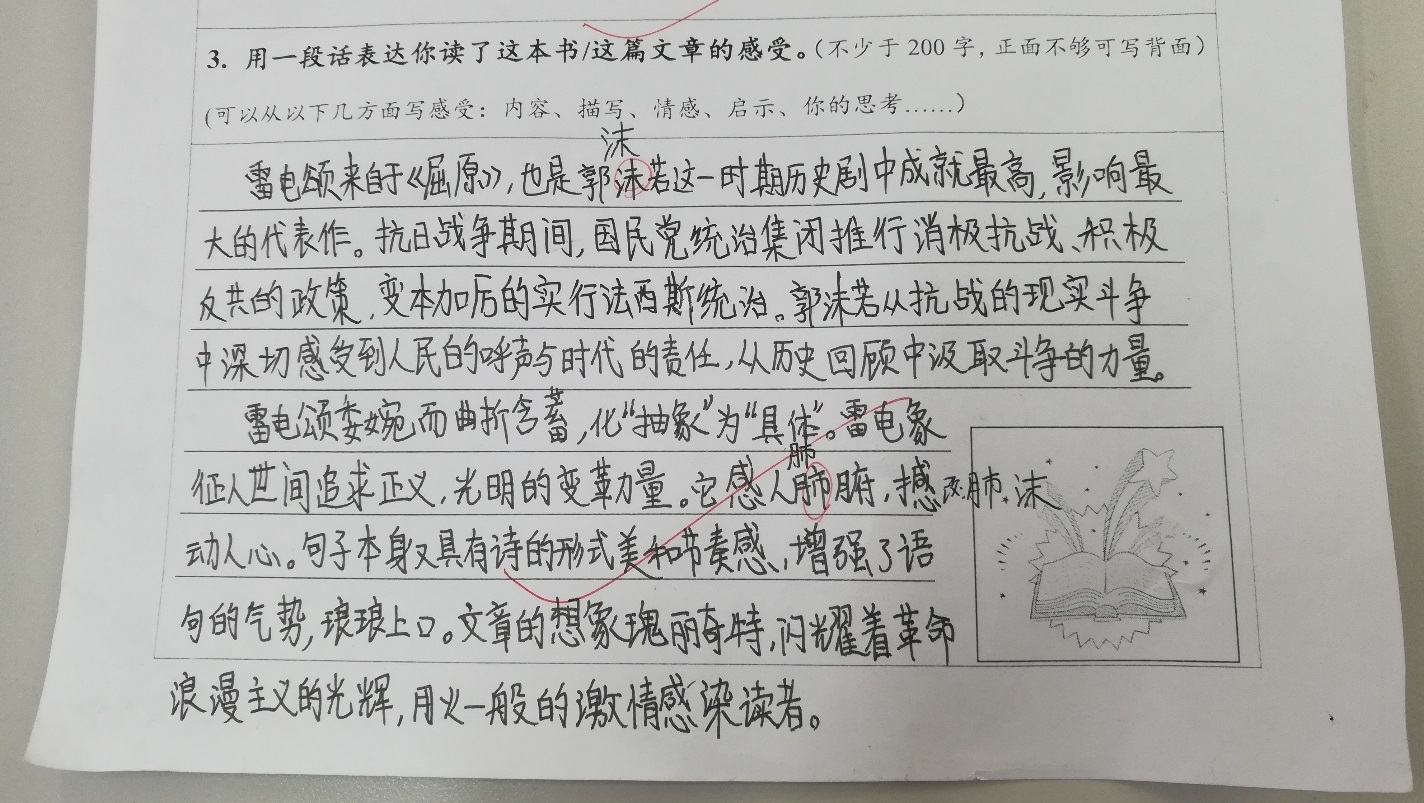 3. 用一段话表达你读了这本书/这篇文章的感受。(不少于 200 字, 正面不够可写背面)
(可以从以下几方面写感受: 内容、描写、情感、启示、你的思考……)
沫
雷电颂来自于《屈原》, 也是郭沫若这一时期历史剧中成就最高, 影响最
大的代表作。抗日战争期间, 国民党统治集团推行消极抗战、积极
反共的政策, 变本加厉的实行法西斯统治。郭沫若从抗战的现实斗争
中深切感受到人民的呼声与时代的责任, 从历史回顾中汲取斗争的力量。
雷电颂委婉而曲折含蓄, 化“抽象”为“具体”。雷电象
肺
征人世间追求正义, 光明的变革力量。它感人肺腑, 撼 改: 肺 沫
动人心。句子本身又具有诗的形式美和节奏感, 增强了语
句的气势, 琅琅上口。文章的想象瑰丽奇特, 闪耀着革命
浪漫主义的光辉, 用火一般的激情感染读者。